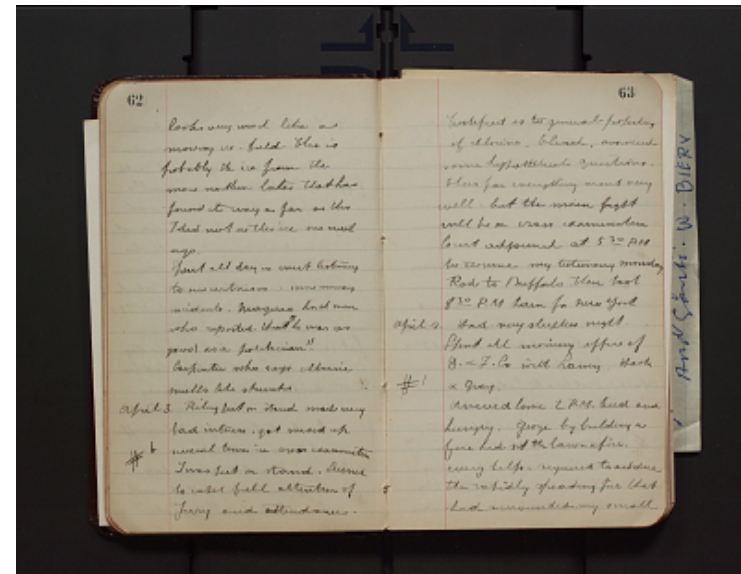 62
looks very much like a
moving ice field this is
probably the ice from the
more northern lakes that has
found its way as far as this
I did not see this ice one week
ago.
Spent all day in court listening
to
incidents. Niagara had man
who reported that "he was as
good as a politician"
Carpenter who says chlorine
smells like skunks
April 3. put on stand made very
bad witness. got mixed up
several times in cross examination
# 6
I was put on stand. Seemed
to catch full attention of
Jury and attendance.
63
Testified as to general properties
of chlorine. bleach, answered
some hypothetical questions.
Thus far everything went very
well - but the main fight
will be on cross examination
Court adjourned at 5 30 PM
to resume my testimony monday
Rode to Buffalo then took
8 30 P.M train for New York
April 4. Had very sleepless night
Spent all morning office of
&
# 1
& Gray.
Arrived home 2 P.M. tired and
hungry. George by building a
fire had set the lawn afire.
every help required to subdue
the rapidly spreading fire that
had surrounded my small
W. BIERY